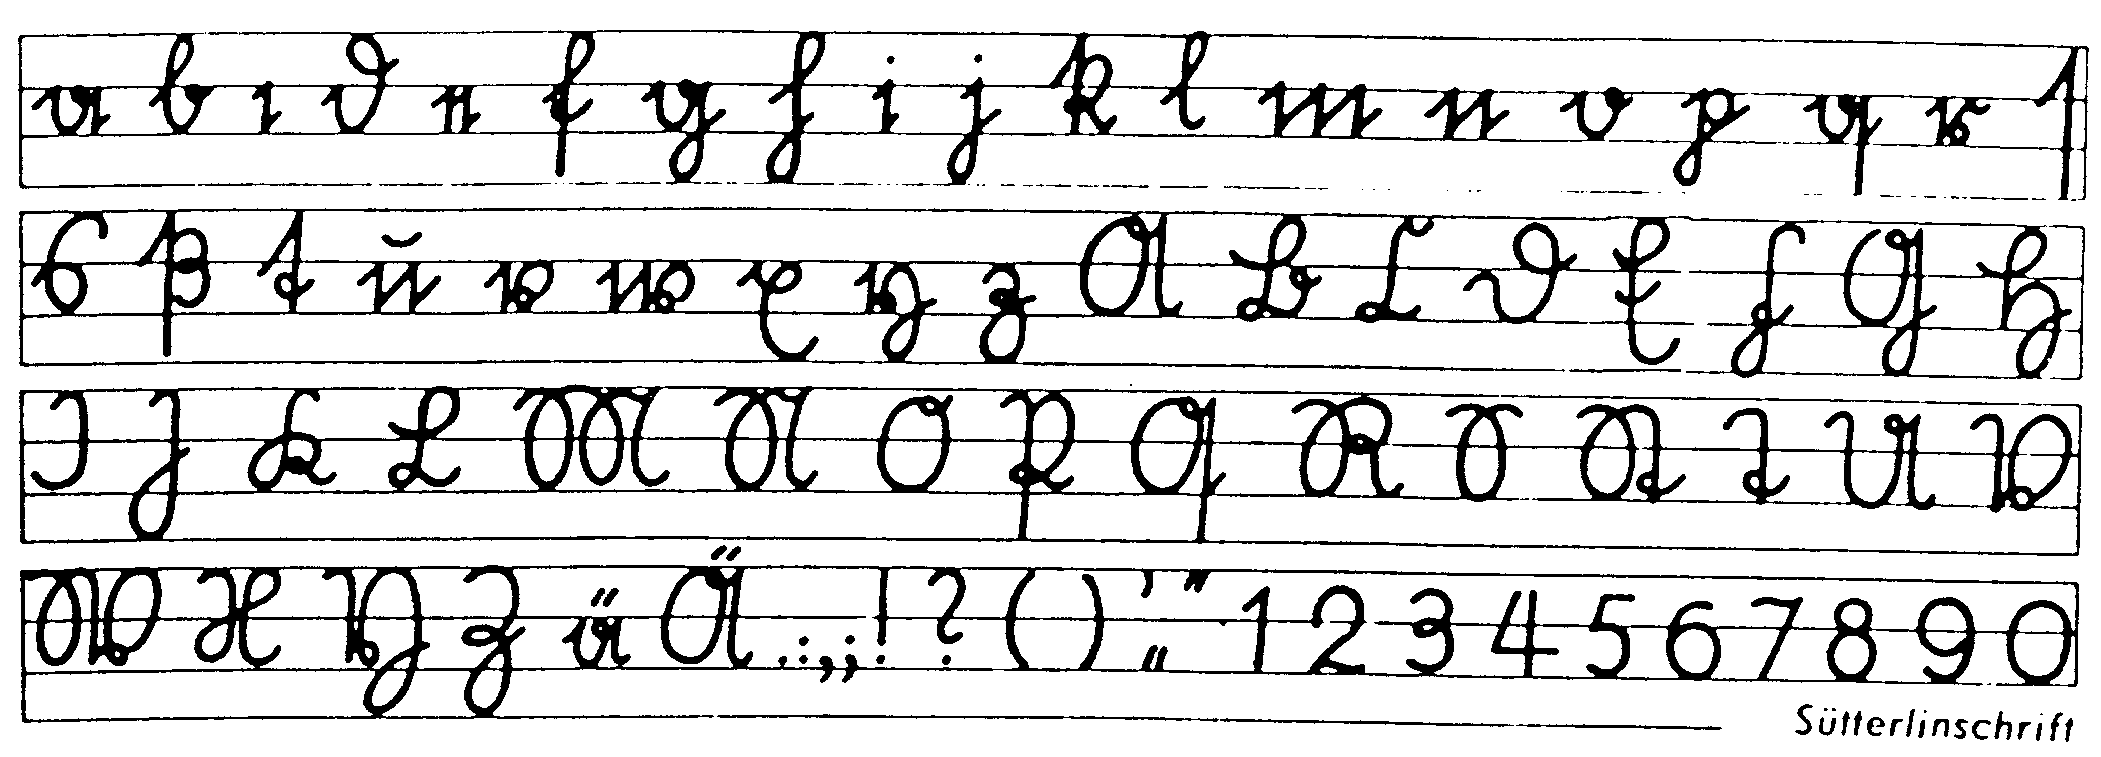 a b c d e f g h i j k l m n o p q r ſ
s ß t u v w x y z A B C D E F G H
I J K L M N O P Q R S St T U V
W X Y Z ä Ä . : , ; ! ? ( ) ' „ " 1 2 3 4 5 6 7 8 9 0
Sütterlinschrift